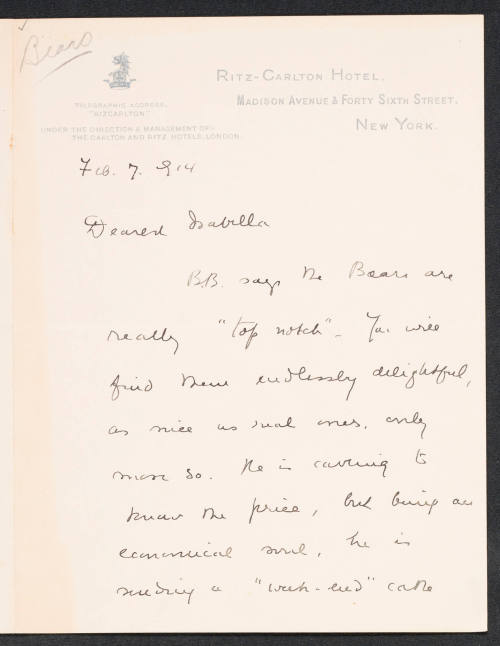 Bears
RITZ-CARLTON HOTEL.
MADISON AVENUE & FORTY SIXTH STREET.
NEW YORK.
TELEGRAPHIC ADDRESS,
"RIZCARLTON"
UNDER THE DIRECTION & MANAGEMENT OF:-
THE CARLTON AND RITZ HOTELS, LONDON.
Feb. 7. 914
Dearest Isabella
B.B. says the Bears are
really "top notch". You will
find them endlessly delightful,
as nice as real ones, only
more so. He is cabling to
know the price, but being an
economical soul, he is
sending a "week-end" cable